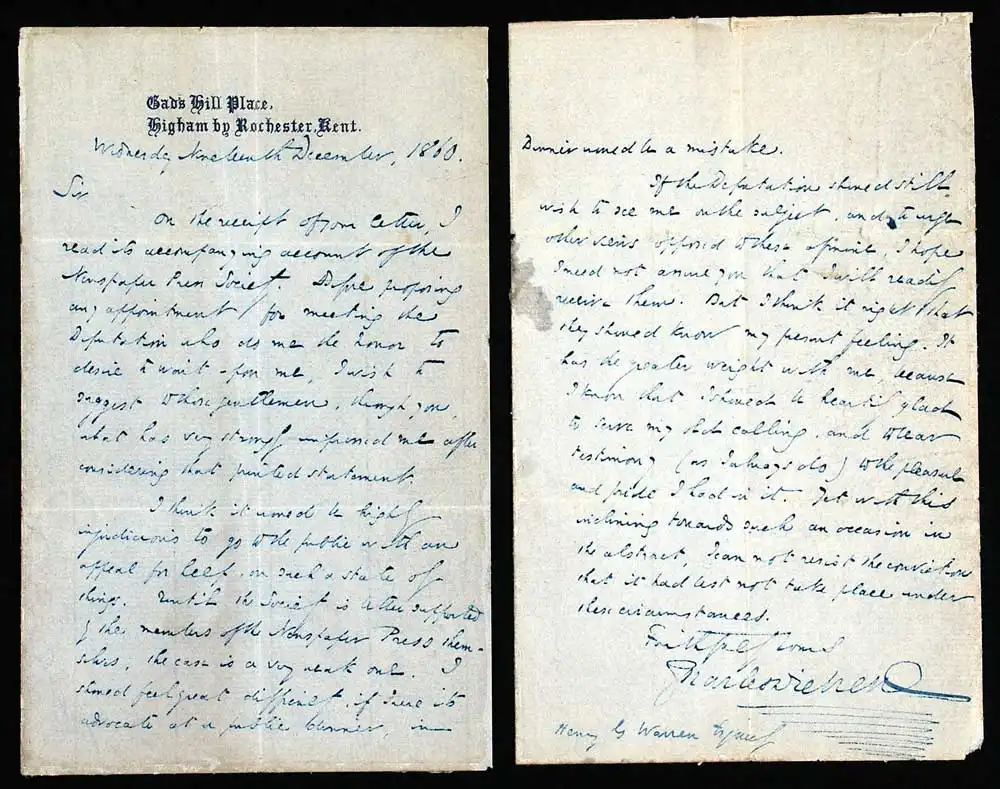 Gad's Hill Place,
Higham by Rochester, Kent.
Wednesday Nineteenth December, 1860.
Sir
On the receipt of your letter, I
read its accompanying account of the
Newspaper Press Society. Before proposing
any appointment for meeting the
Deputation who do me the honor to
desire to wait upon me, I wish to
suggest to those gentlemen, through you,
what has very strongly impressed me after
considering that printed statement
I think it would be highly
injudicious to go to the public with an
appeal for help, on such a state of
things. Until the Society is better supported
by the members of the Newspaper Press them-
selves, the case is a very weak one. I
should feel great difficulty, if I were its
advocate at a public Dinner, in
Dinner would be a mistake.
If the Deputation should still
wish to see me on the subject, and to urge
other views opposed to these of mine, I hope
I need not assure you that I will readily
receive them. But I think it right that
they should know my present feeling. It
has the greater weight with me, because
I know that I should be heartily glad
to serve my old calling, and to bear
testimony (as I always do) to the pleasure
and pride I had in it. Yet with this
inclining towards such an occasion in
the abstract, I can not resist the conviction
that it had best not take place under
these circumstances.
Faithfully Yours
Charles Dickens
Henry G Warren Esquire